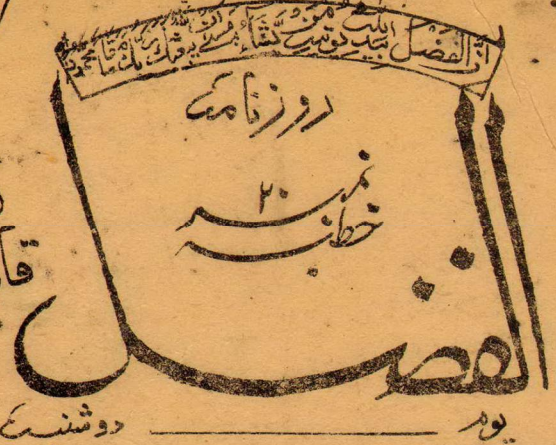 ان الفضل بید اللہ یؤتیہ من یشاء عسیٰ ان یبعثک ربک مقاما محمودا
روزنامہ
خطبہ نمبر ۲۰
الفضل
یوم دوشنبہ